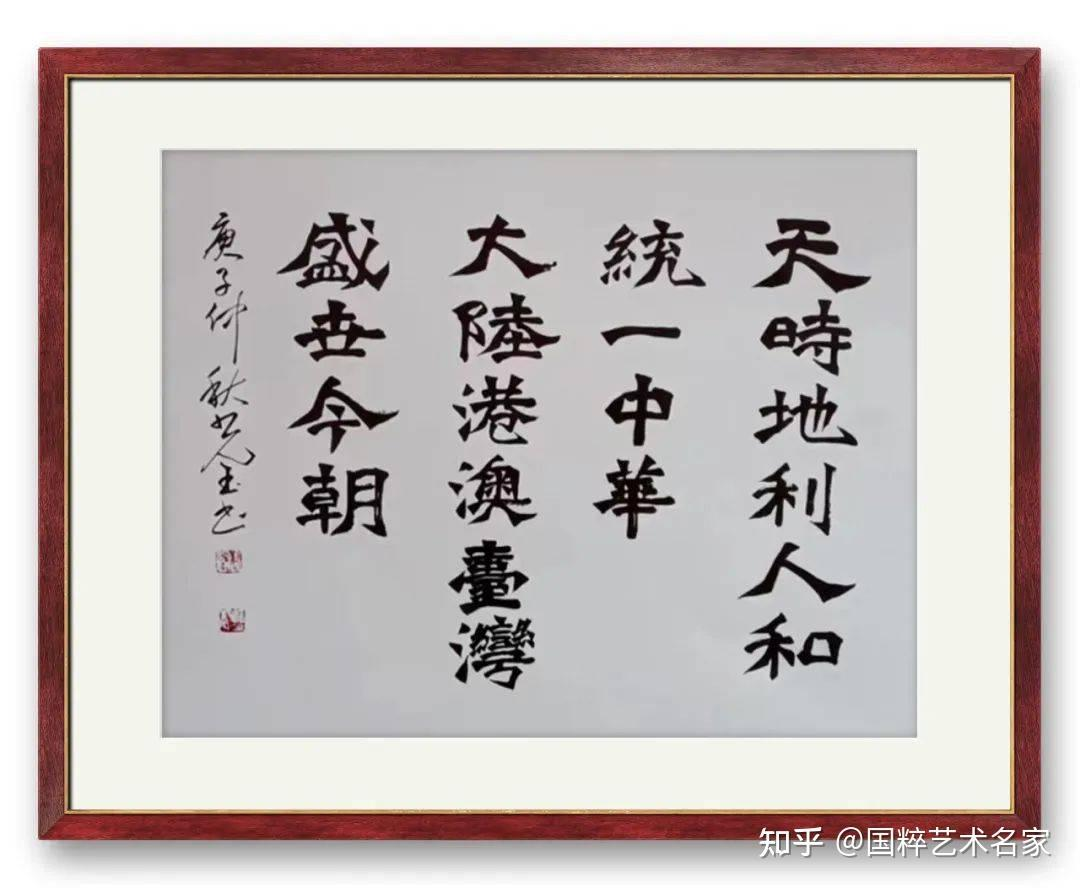 天時地利人和
統一中華
大陸港澳臺灣
盛世今朝
庚子仲秋
知乎 @国粹艺术名家